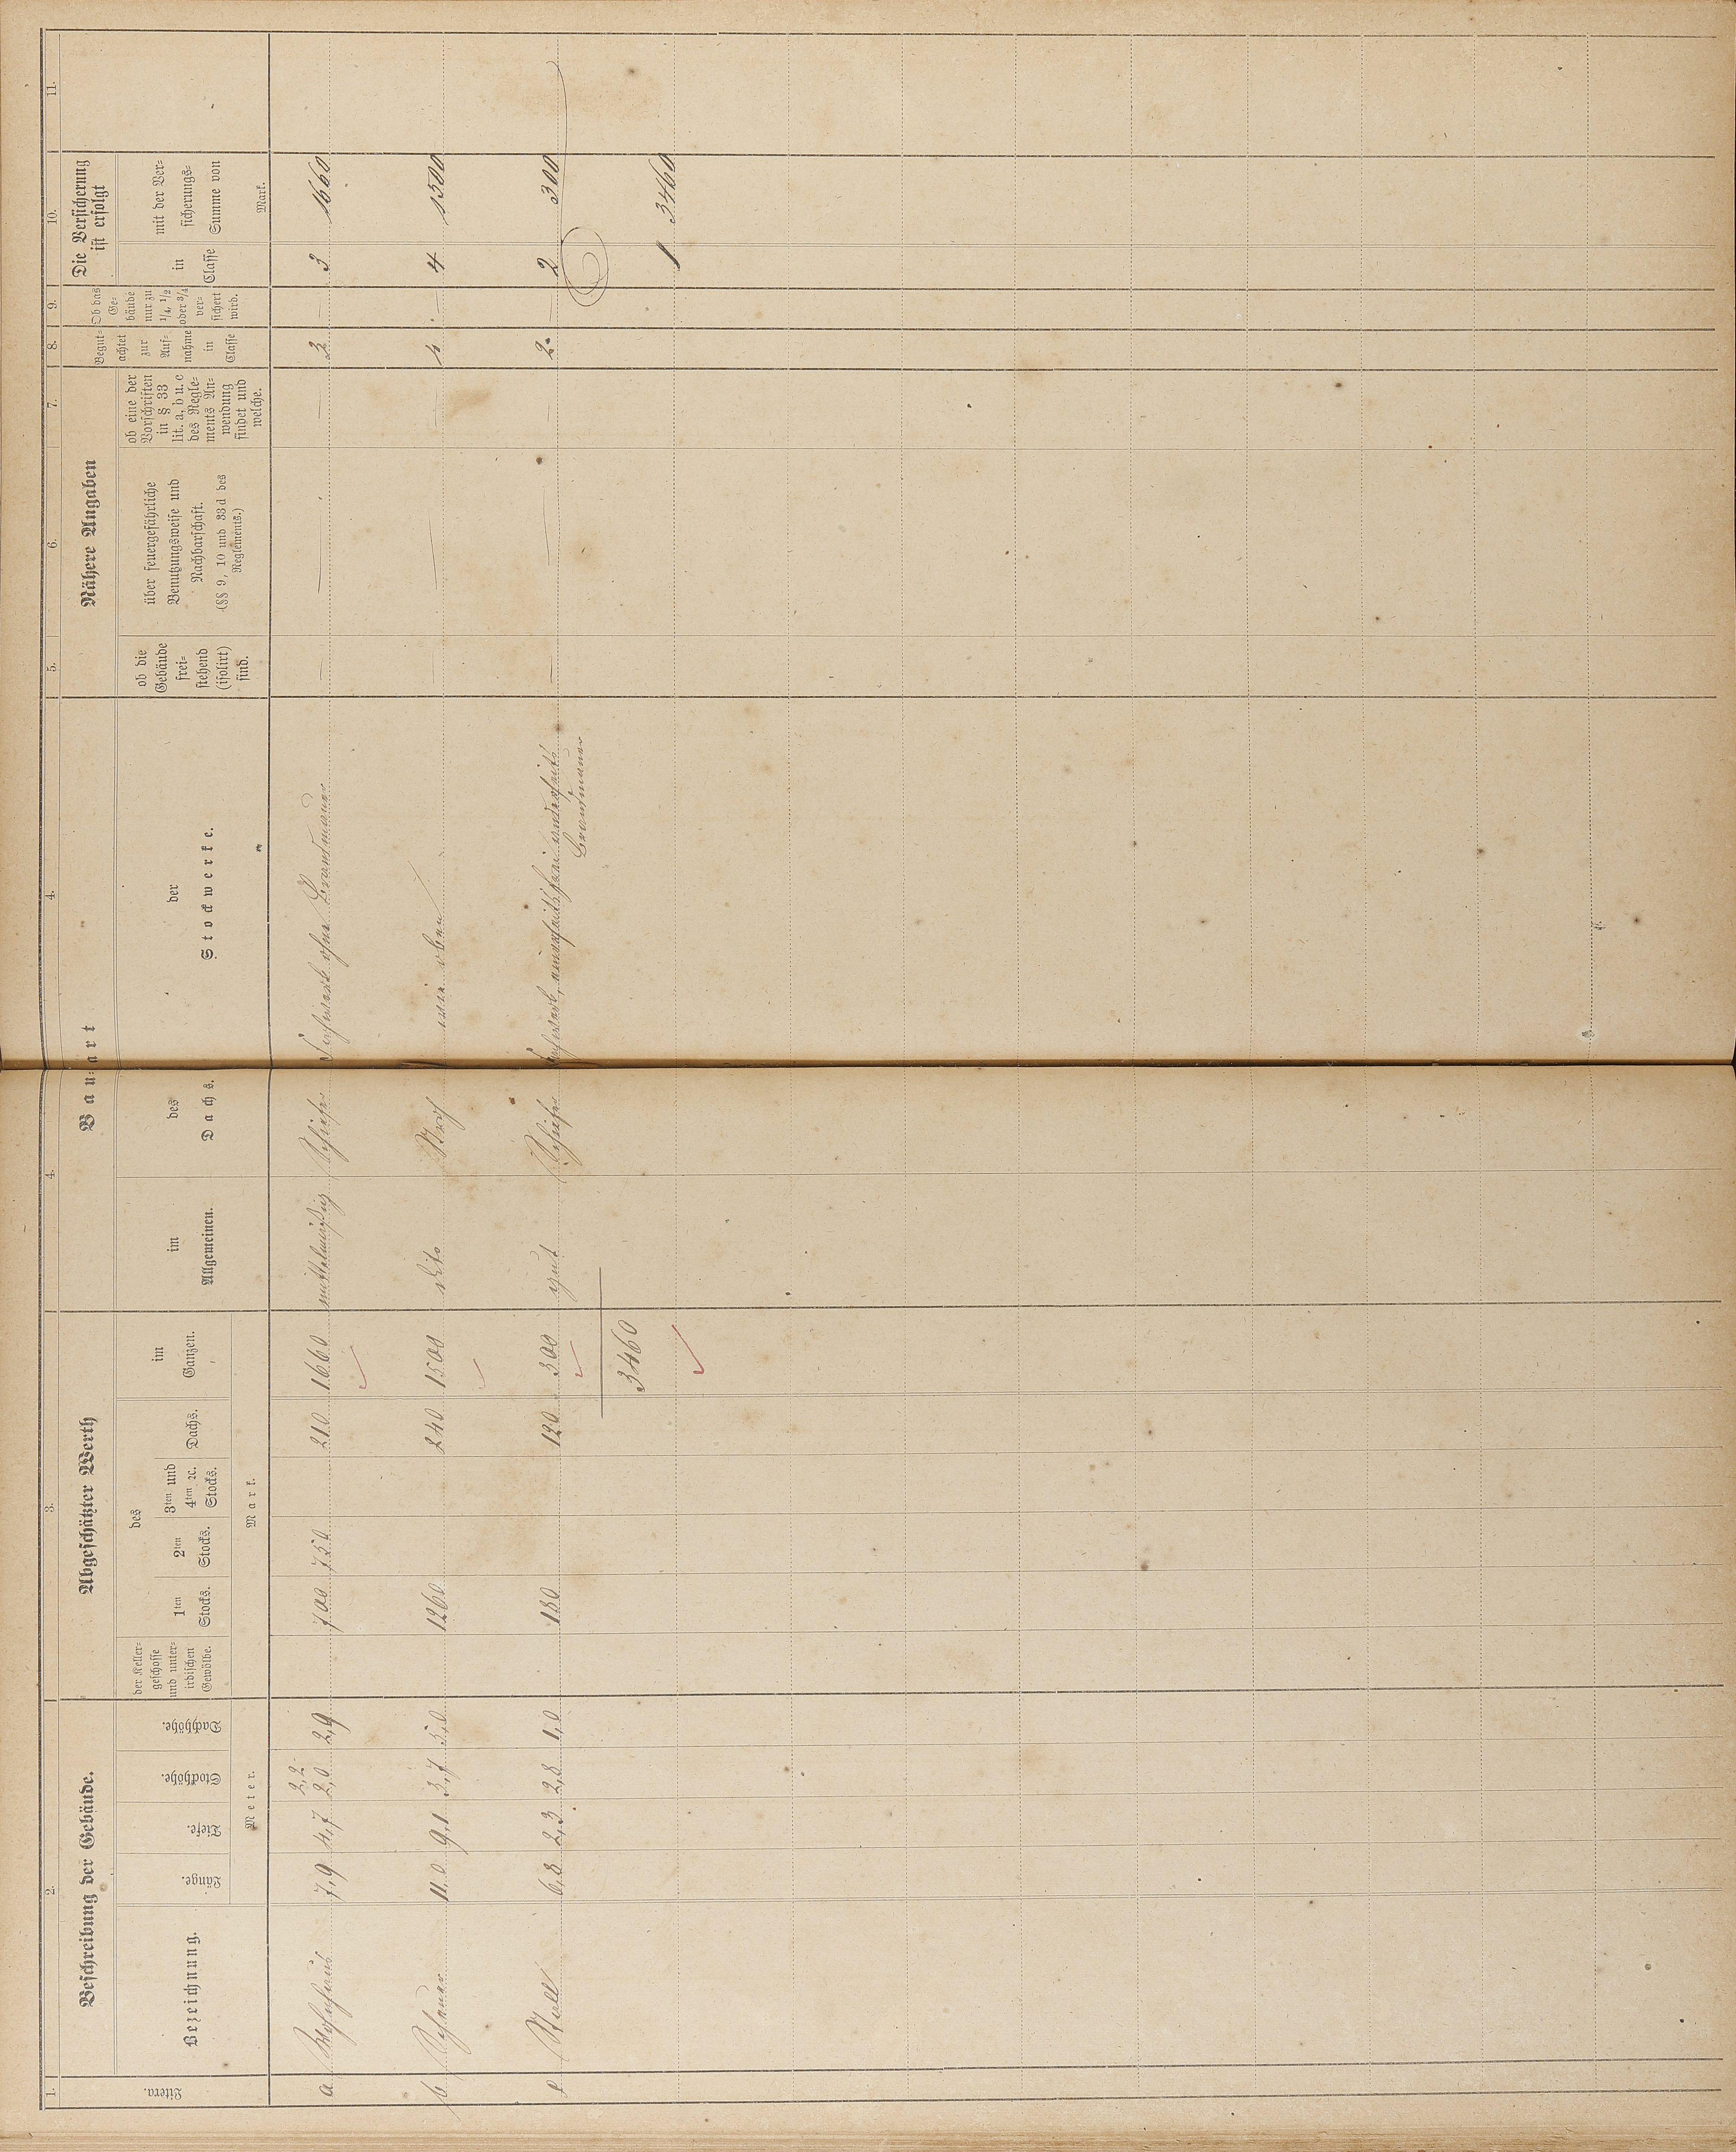 1. 2. 3. 4. 4. 5. 6. 7. 8. 9. 10. 11.
Litera.
Beschreibung der Gebäude.
Bezeichnung.
Länge.
Tiefe.
Stockhöhe.
Dachhöhe.
Meter.
Abgeschätzter Werth
der Keller-
geschosse
und unter-
irdischen
Gewölbe.
des
1ten
Stocks.
2ten
Stocks.
3ten und
4ten ꝛc.
Stocks.
Dachs.
im
Ganzen.
Mark.
Bau-art
im
Allgemeinen.
des
Dachs.
der
Stockwerke.
Nähere Angaben
ob die
Gebäude
frei-
stehend
(isolirt)
sind.
über feuergefährliche
Benutzungsweise und
Nachbarschaft.
(§§ 9, 10 und 33 d des
Reglements.)
ob eine der
Vorschriften
in § 33
lit. a, b u. c
des Regle-
ments An-
wendung
findet und
welche.
Begut-
achtet
zur
Auf-
nahme
in
Classe
Ob das
Ge-
bäude
nur zu
1/4, 1/2
oder 3/4
ver-
sichert
wird.
Die Versicherung
ist erfolgt
in
Classe
mit der Ver-
sicherungs-
Summe von
Mark.
2,2
a Wohnhaus 7,9 4,7 2,0 2,9 700 750 210 1660 mittelmäßig Schiefer Fachwerk ohne Brandmauer — — — 3 — 3 1660
b Scheuer 11,0 9,1 3,7 5,0 1260 240 1500 dito Stroh wie oben — — — 4 — 4 1500
c Stall 6,8 2,3 2,8 1,0 180 120 300 gut Schiefer Fachwerk, einerseits frei anderseits — — — 2. — 2 300
Brandmauer
3460
1 3460